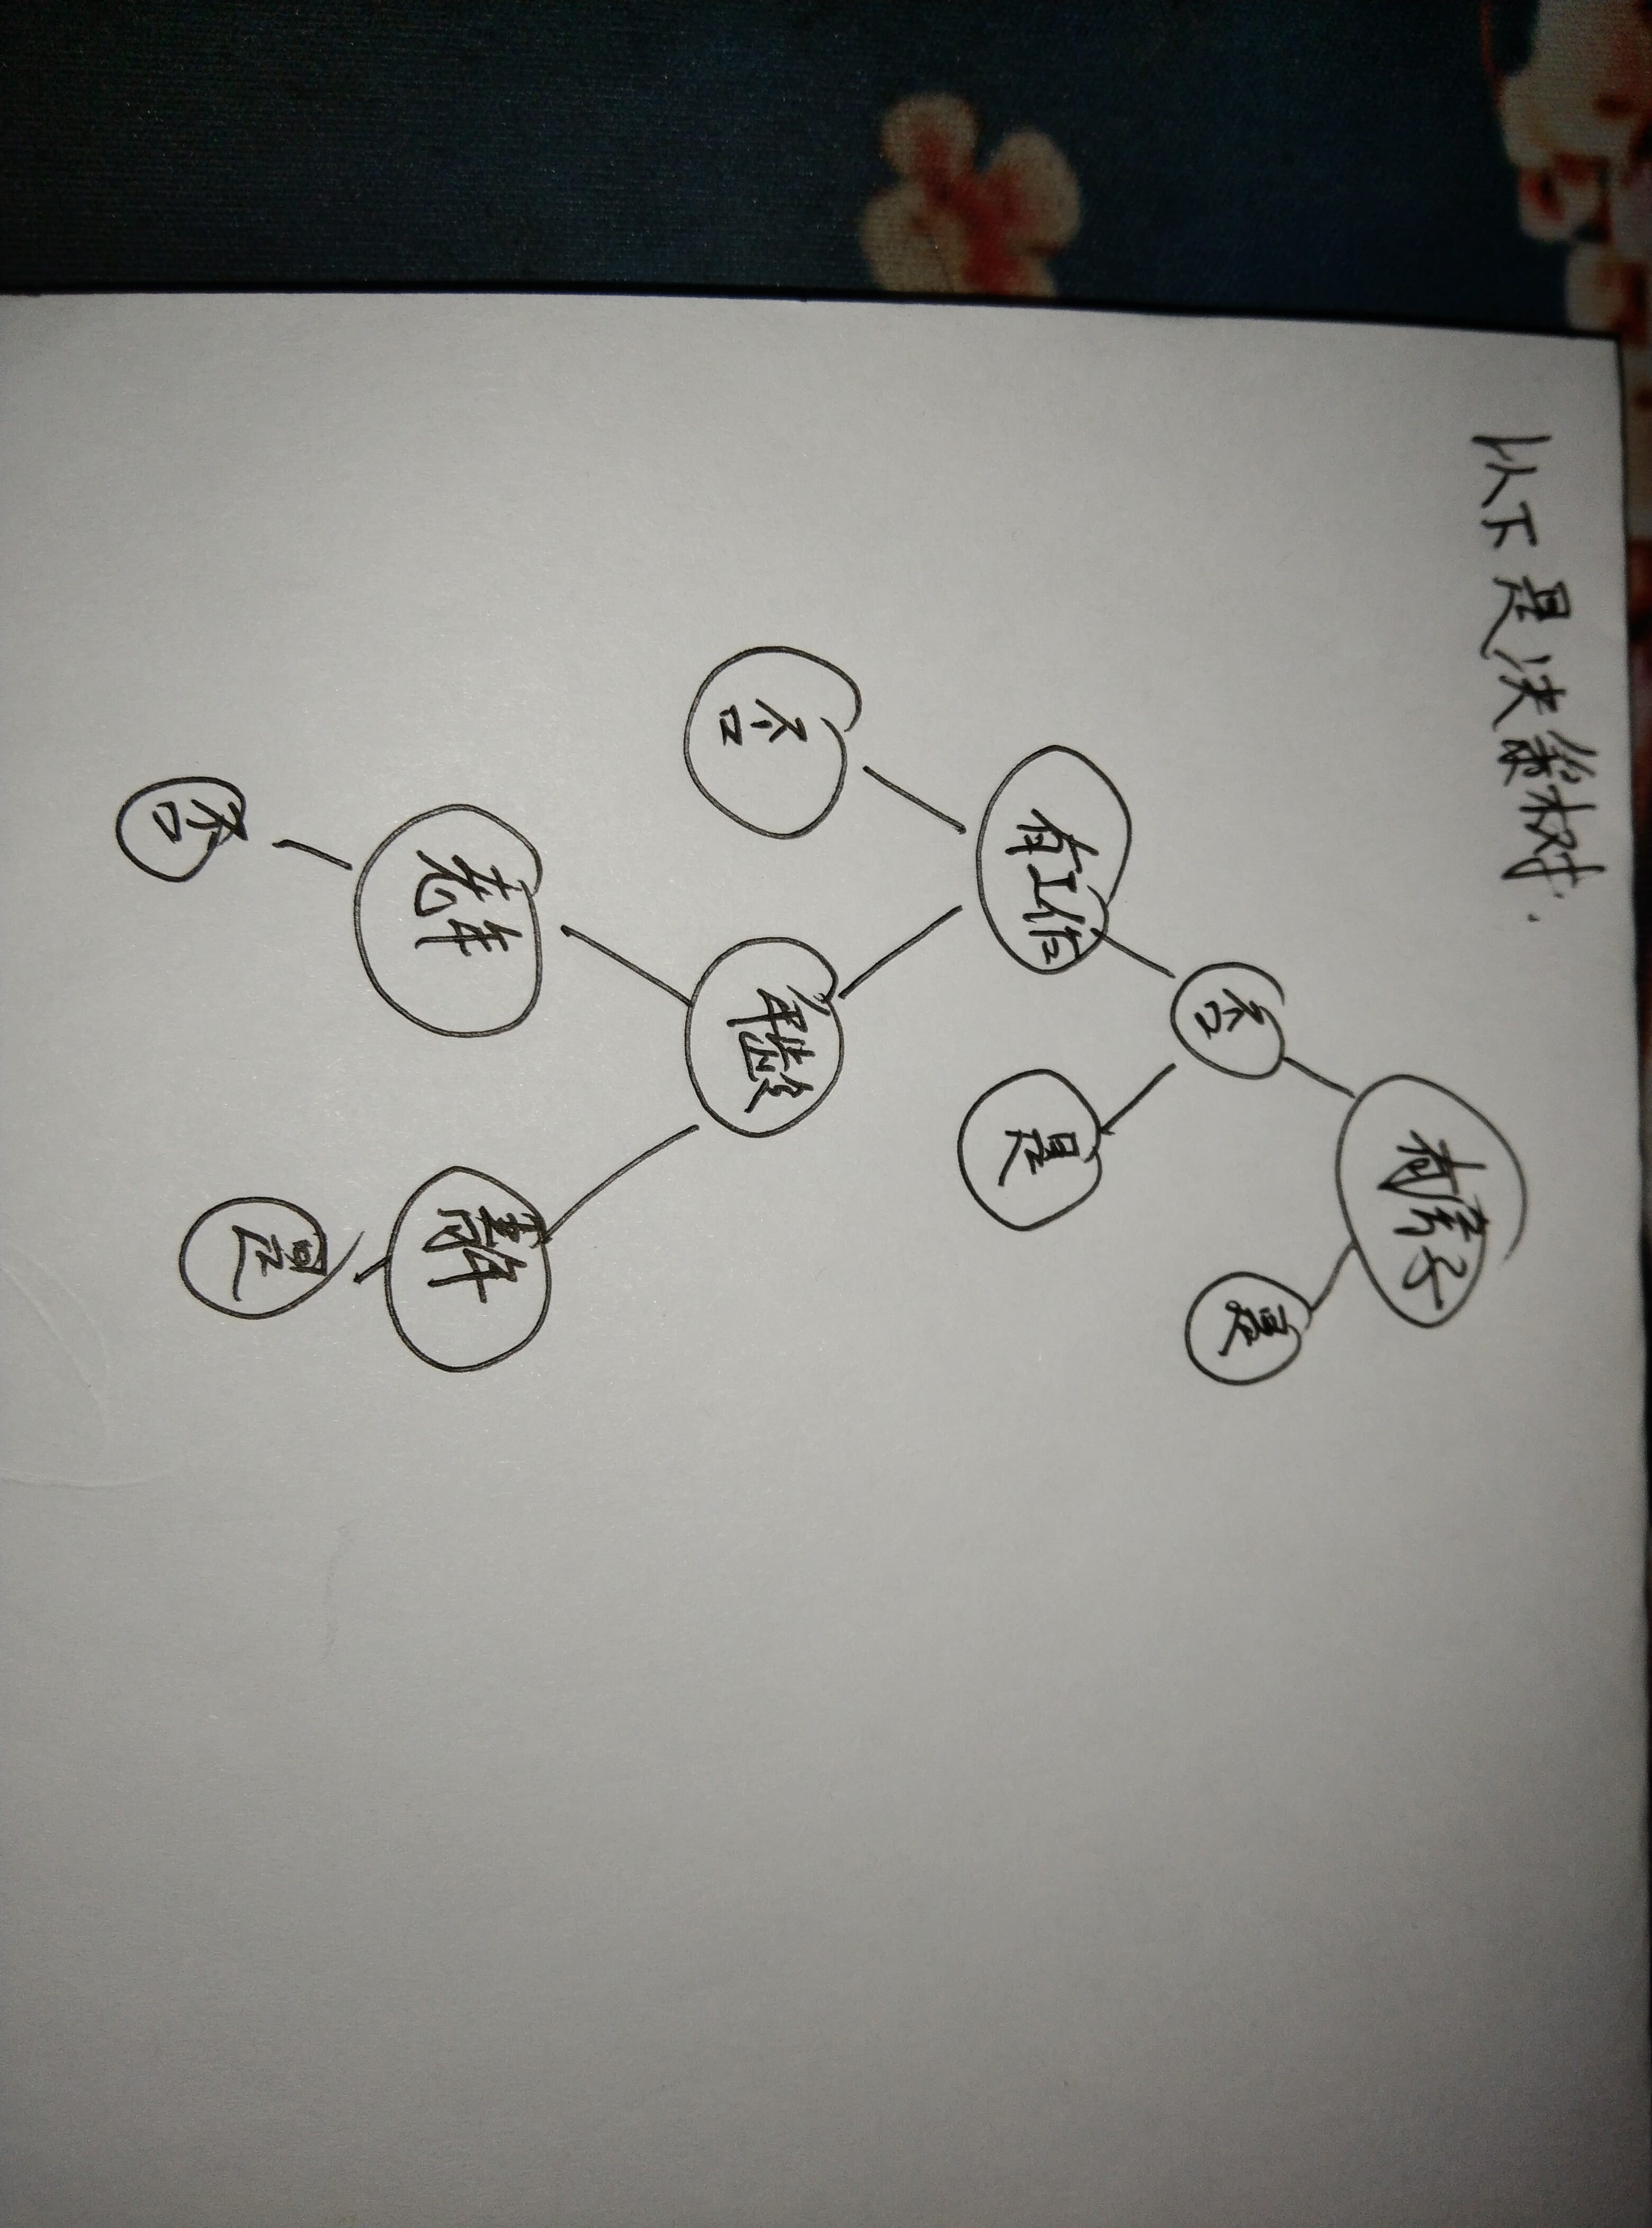 以下是决策树.
有房子
否
是
有工作
是
否
年龄
老年
青年
否
是